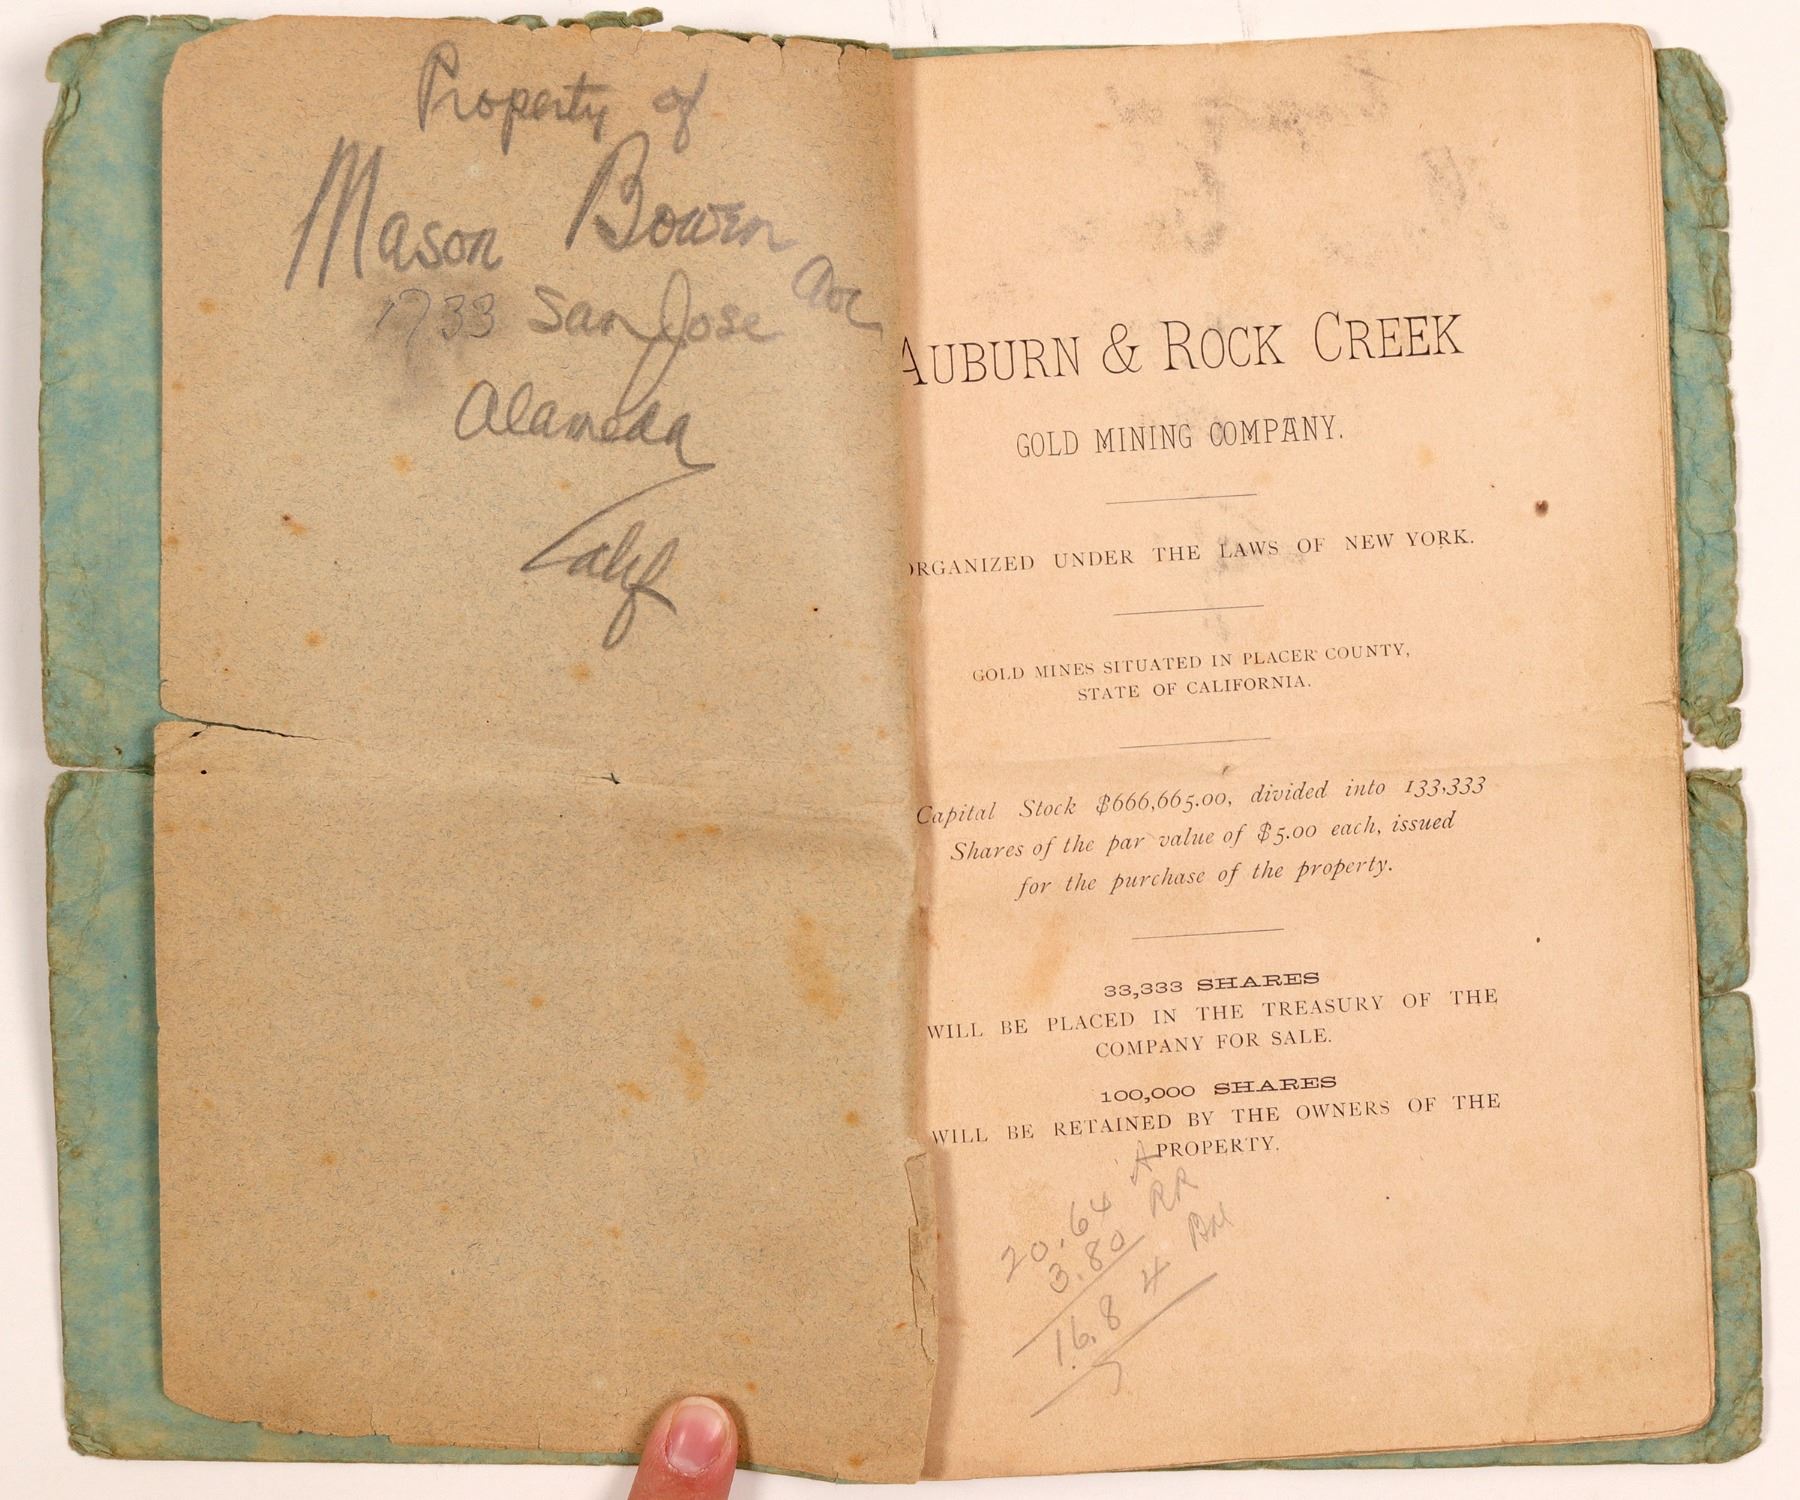 Property of
Mason Bowen
1733 San Jose Ave
Alameda
Calif
AUBURN & ROCK CREEK
GOLD MINING COMPANY.
ORGANIZED UNDER THE LAWS OF NEW YORK.
GOLD MINES SITUATED IN PLACER COUNTY,
STATE OF CALIFORNIA.
Capital Stock $666,665.00, divided into 133,333
Shares of the par value of $5.00 each, issued
for the purchase of the property.
33,333 SHARES
WILL BE PLACED IN THE TREASURY OF THE
COMPANY FOR SALE.
100,000 SHARES
WILL BE RETAINED BY THE OWNERS OF THE
PROPERTY.
20.64 RR
3.80
16.84